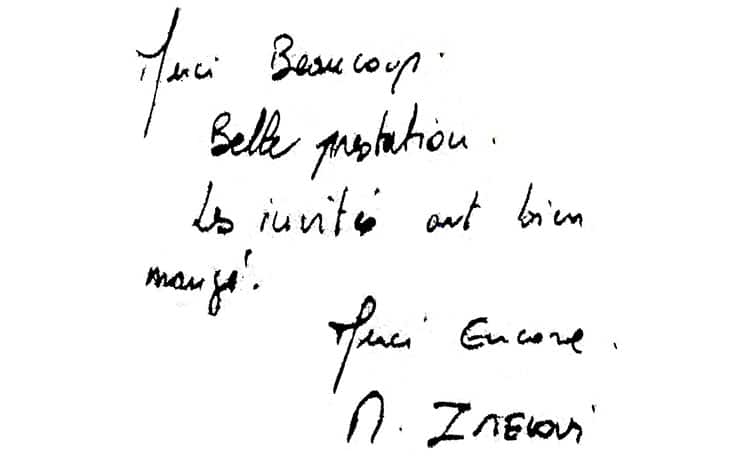 Merci Beaucoup.
Belle prestation.
Les invités ont bien
mangé.
Merci Encore.
M.